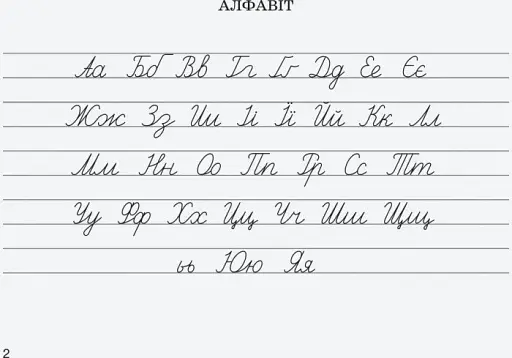 АЛФАВІТ
Аа Бб Вв Гг Ґґ Дд Ее Єє
Жж Зз Ии Іі Її Йй Кк Лл
Мм Нн Оо Пп Рр Сс Тт
Уу Фф Хх Цц Чч Шш Щщ
ь Юю Яя
2